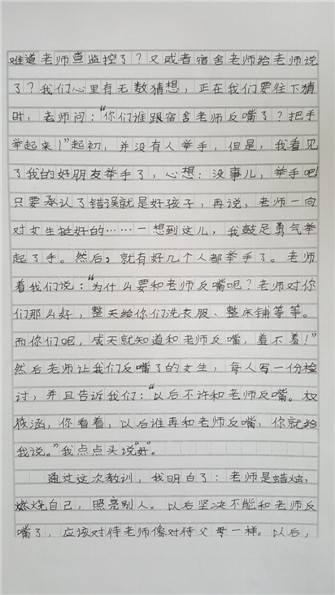 难道老师查监控了？又或者宿舍老师给老师说
了？我们心里有无数猜想，正在我们要往下猜
时，老师问：“你们谁跟宿舍老师反嘴了？把手
举起来！”起初，并没有人举手，但是，我看见
了我的好朋友举手了，心想：没事儿，举手吧
只要承认了错误就是好孩子，再说，老师一向
对女生挺好的……一想到这儿，我鼓足勇气举
起了手。然后，就有好几个人都举手了。老师
看我们说：“为什么要和老师反嘴呢？老师对你
们那么好，整天给你们洗衣服、整床铺等等。
而你们呢，成天就知道和老师反嘴，羞不羞！”
然后老师让我们反嘴了的女生，每人写一份检
讨，并且告诉我们：“以后不许和老师反嘴。权
筱涵，你看着，以后谁再和老师反嘴，你就给
我说。”我点点头说“好”。
通过这次教训，我明白了：老师是蜡烛，
燃烧自己，照亮别人。以后坚决不能和老师反
嘴了，应该对待老师像对待父母一样。以后，